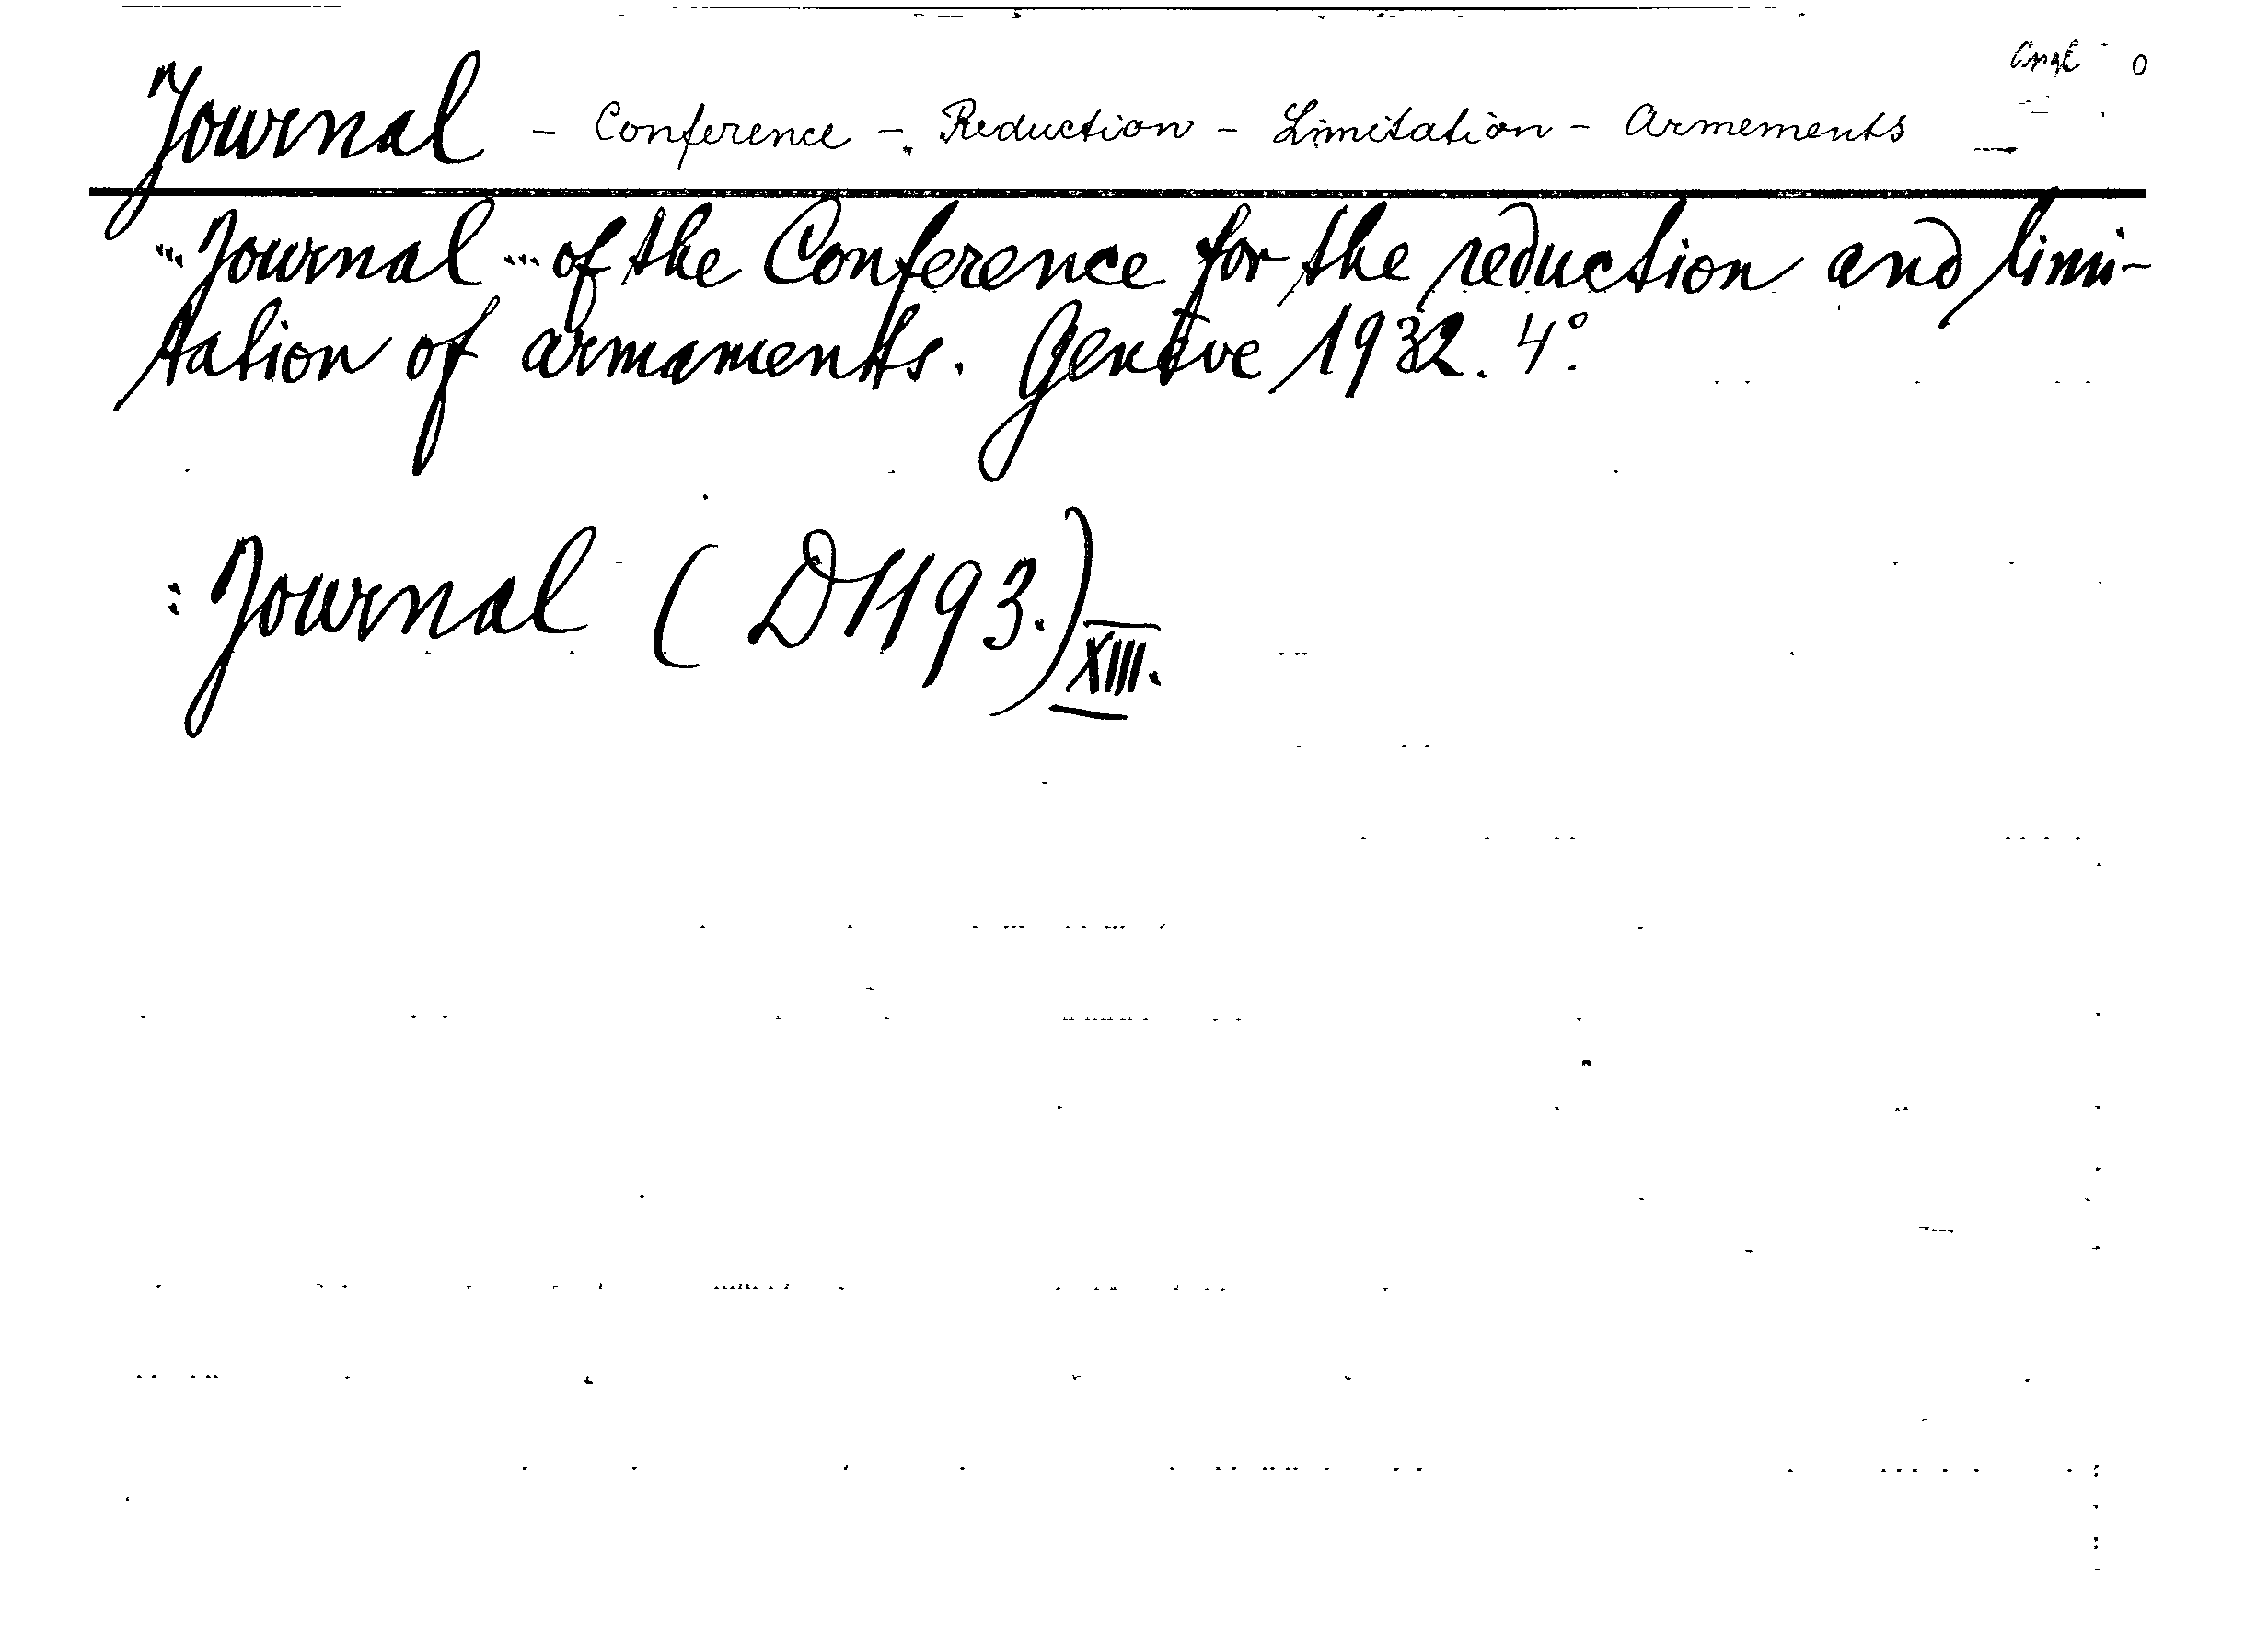 Angl 0
Journal - Conference - Reduction - Limitation - Armements
"Journal" of the Conference for the reduction and limi-
tation of armaments. Genève 1932. 4°.
: Journal (D1193.) XIII.